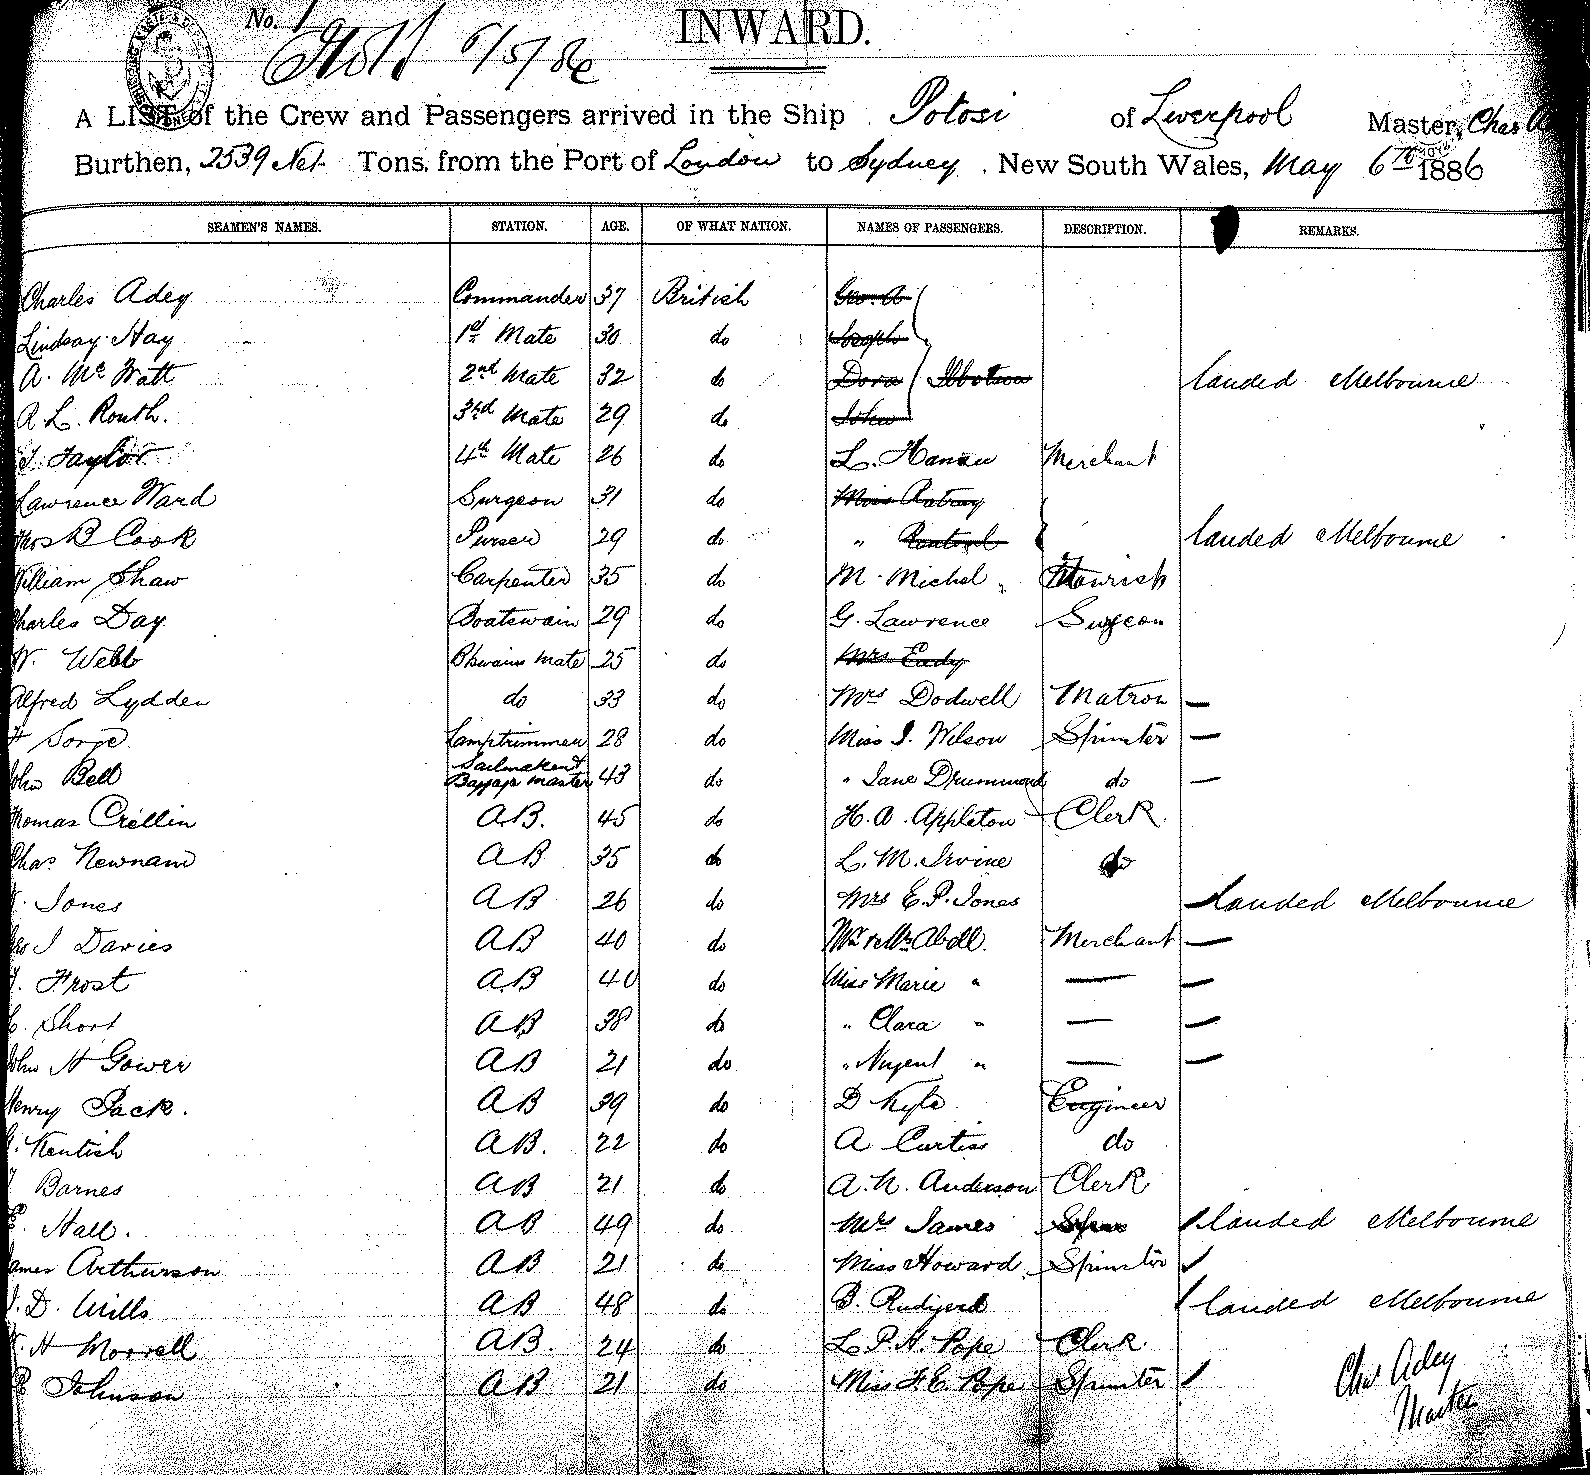 No. 1
INWARD.
6/5/86
A LIST of the Crew and Passengers arrived in the Ship Potosi of Liverpool Master, Chas
Burthen, 2539 Net Tons. from the Port of London to Sydney, New South Wales, May 6th 1886
SEAMEN'S NAMES. STATION. AGE. OF WHAT NATION. NAMES OF PASSENGERS. DESCRIPTION. REMARKS.
Charles Adey Commander 37 British Geo. A
Lindsay Hay 1st Mate 30 do Joseph
A. Mc Watt 2nd Mate 32 do Dora Ibbotson landed Melbourne
A L. Routh. 3rd Mate 29 do John
Taylor 4th Mate 26 do L. Hanau Merchant
Lawrence Ward Surgeon 31 do Miss
Thos B Cook Purser 29 do " landed Melbourne
William Shaw Carpenter 35 do M. Michel
Charles Day Boatswain 29 do G. Lawrence Surgeon
W. Webb Bkwains Mate 25 do Mrs Eady
Alfred Lydden do 33 do Mrs Dodwell Matron —
Sorge Lamptrimmer 28 do Miss J. Wilson Spinster —
John Bell Sailmaker & Baggage Master 43 do " Jane Drummond do —
Thomas Crellin AB. 45 do H. A. Appleton Clerk
Chas Newnam AB 35 do L. M. Irvine do
Jones AB 26 do Mrs E. P. Jones landed Melbourne
Geo J Davies AB 40 do Mr & Mrs Abell. Merchant —
Frost AB 40 do Miss Marie " — —
Short AB 38 do " Clara " — —
John H Gower AB 21 do " Nugent " — —
Henry Jack. AB 39 do D Kyle Engineer
Kentish AB. 22 do A Curtiss do
Barnes AB 21 do A. N. Anderson Clerk
Hall. AB 49 do Mrs James landed Melbourne
James Arthurson AB 21 do Miss Howard Spinster
D. Wills AB 48 do B. landed Melbourne
H Morrell AB. 24 do L. P. H. Pope Clerk
Johnson AB 21 do Miss F. E. Pope Spinster
Chas Adey
Master